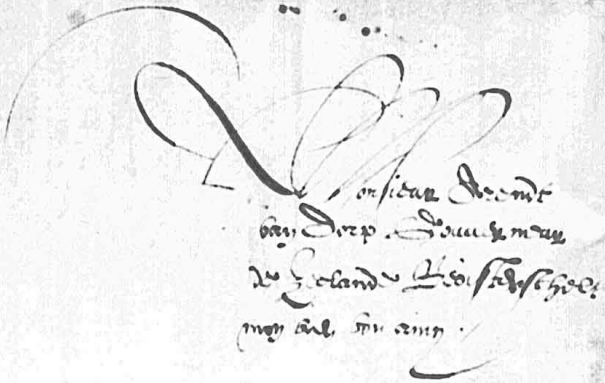 Monsieur Arendt
van Dorp Gouverneur
de Zelande Beoisterschelt
mon bon amy.